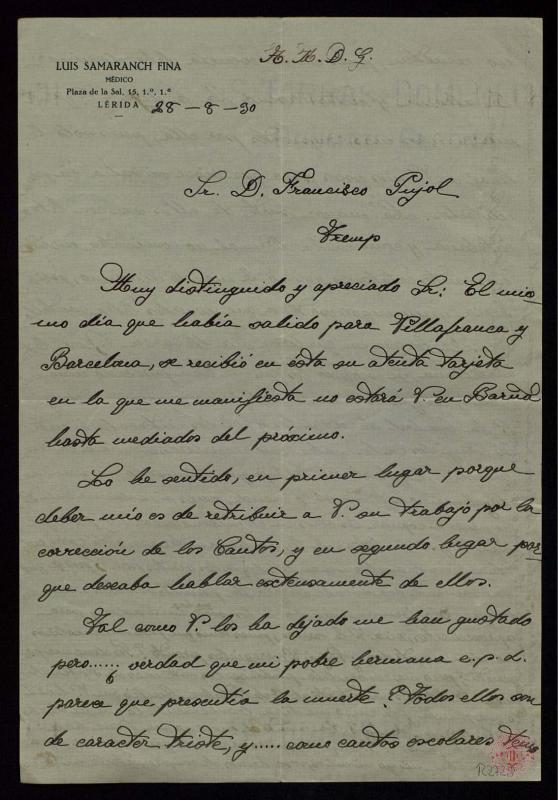 A. M. D. G.
LUIS SAMARANCH FINA
MÉDICO
Plaza de la Sal, 15, 1.º, 1.ª
LÉRIDA 28 – 8 – 30
Sr. D. Francisco Pujol
Tremp
Muy distinguido y apreciado Sr: El mis-
mo día que había salido para Villafranca y
Barcelona, se recibió en esta su atenta tarjeta
en la que me manifiesta no estará V. en Barna
hasta mediados del próximo.
Lo he sentido, en primer lugar porque
deber mío es de retribuir a V. su trabajo por la
corrección de los Cantos, y en segundo lugar por-
que deseaba hablar extensamente de ellos.
Tal como V. los ha dejado me han gustado
pero...... ¿ verdad que mi pobre hermana e. p. d.
parece que presentía la muerte? Todos ellos son
de caracter triste, y ..... como cantos escolares temo